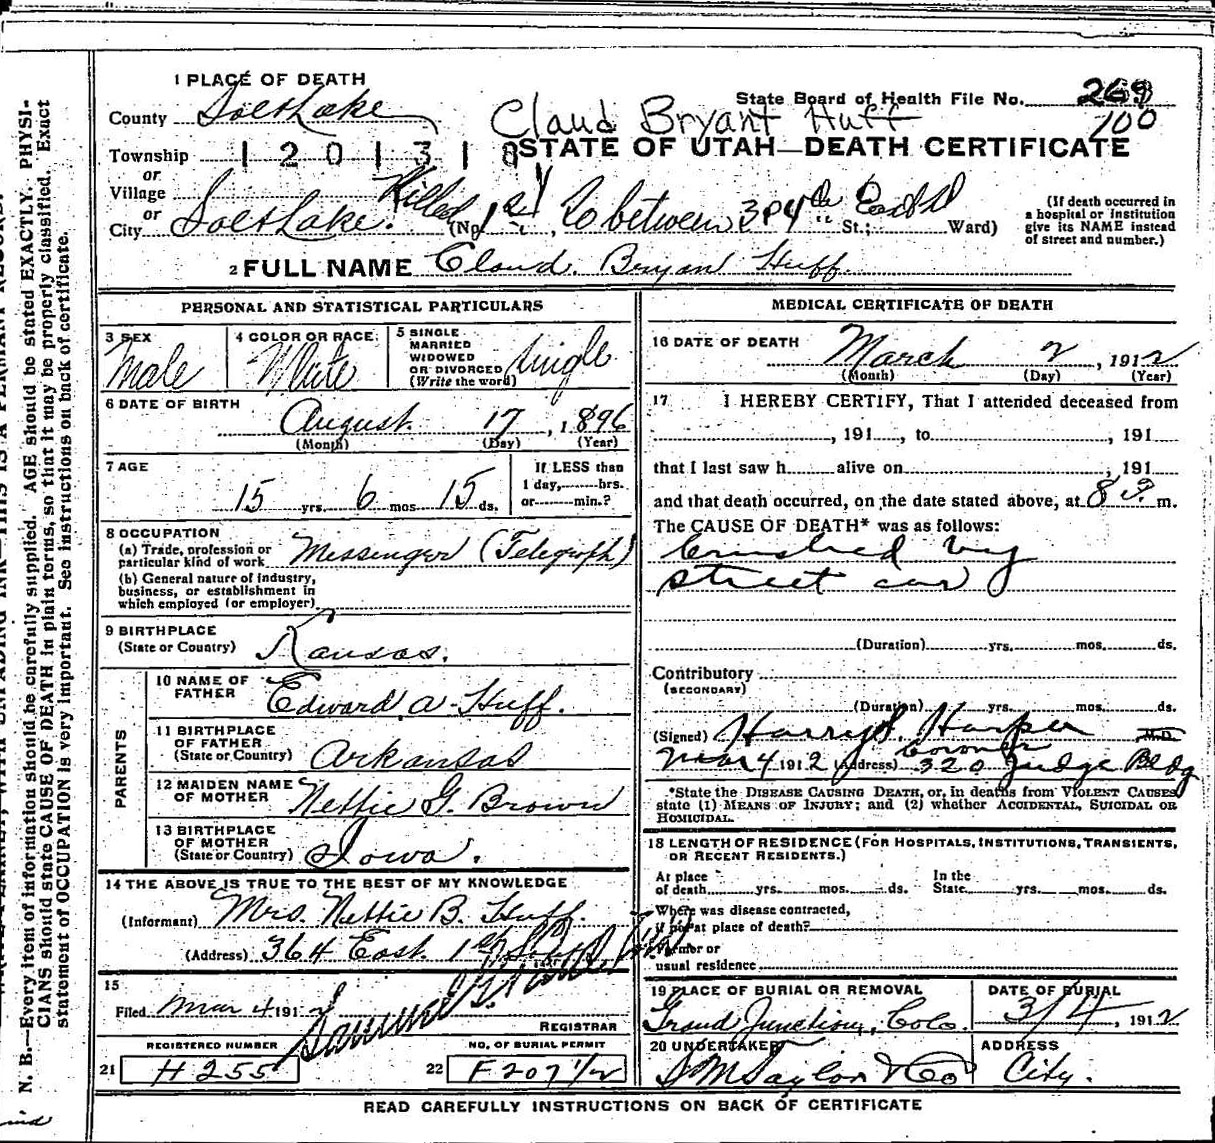 1 PLACE OF DEATH
County Salt Lake
State Board of Health File No. 269
100
Claud Bryant Huff
Township 1201318
STATE OF UTAH—DEATH CERTIFICATE
or
Village
or
City Salt Lake. Killed (No. 1st So between 3 & 4th East St.; Ward)
(If death occurred in a hospital or institution give its NAME instead of street and number.)
2 FULL NAME Claud Bryan Huff
PERSONAL AND STATISTICAL PARTICULARS
3 SEX Male
4 COLOR OR RACE White
5 SINGLE MARRIED WIDOWED OR DIVORCED (Write the word) Single
6 DATE OF BIRTH
August 17, 1896
(Month) (Day) (Year)
7 AGE
15 yrs. 6 mos. 15 ds.
If LESS than
1 day, hrs.
or min.?
8 OCCUPATION
(a) Trade, profession or particular kind of work Messenger (Telegraph)
(b) General nature of industry, business, or establishment in which employed (or employer)
9 BIRTHPLACE
(State or Country) Kansas.
PARENTS
10 NAME OF FATHER Edward A. Huff.
11 BIRTHPLACE OF FATHER (State or Country) Arkansas
12 MAIDEN NAME OF MOTHER Nettie G. Brown
13 BIRTHPLACE OF MOTHER (State or Country) Iowa.
14 THE ABOVE IS TRUE TO THE BEST OF MY KNOWLEDGE
(Informant) Mrs. Nettie B. Huff.
(Address) 364 East 1st So
15
Filed Mar 4 1912
REGISTRAR
REGISTERED NUMBER
21 H 255
NO. OF BURIAL PERMIT
22 F 207 1/2
MEDICAL CERTIFICATE OF DEATH
16 DATE OF DEATH
March 2, 1912
(Month) (Day) (Year)
17 I HEREBY CERTIFY, That I attended deceased from
, 191 , to , 191
that I last saw h alive on , 191
and that death occurred, on the date stated above, at 8 m.
The CAUSE OF DEATH* was as follows:
Crushed by
street car
(Duration) yrs. mos. ds.
Contributory
(SECONDARY)
(Duration) yrs. mos. ds.
(Signed) Harry S. Harper M.D.
Coroner
Mar 4 1912 (Address) 320 Judge Bldg
*State the DISEASE CAUSING DEATH, or, in deaths from VIOLENT CAUSES
state (1) MEANS OF INJURY; and (2) whether ACCIDENTAL, SUICIDAL OR
HOMICIDAL.
18 LENGTH OF RESIDENCE (FOR HOSPITALS, INSTITUTIONS, TRANSIENTS,
OR RECENT RESIDENTS.)
At place of death yrs. mos. ds. In the State yrs. mos. ds.
Where was disease contracted,
if not at place of death?
Former or
usual residence
19 PLACE OF BURIAL OR REMOVAL
Grand Junction, Colo.
DATE OF BURIAL
3/4, 1912
20 UNDERTAKER
S M Taylor & Co
ADDRESS
City.
READ CAREFULLY INSTRUCTIONS ON BACK OF CERTIFICATE
N. B.—Every item of information should be carefully supplied. AGE should be stated EXACTLY. PHYSI-
CIANS should state CAUSE OF DEATH in plain terms, so that it may be properly classified. Exact
statement of OCCUPATION is very important. See instructions on back of certificate.